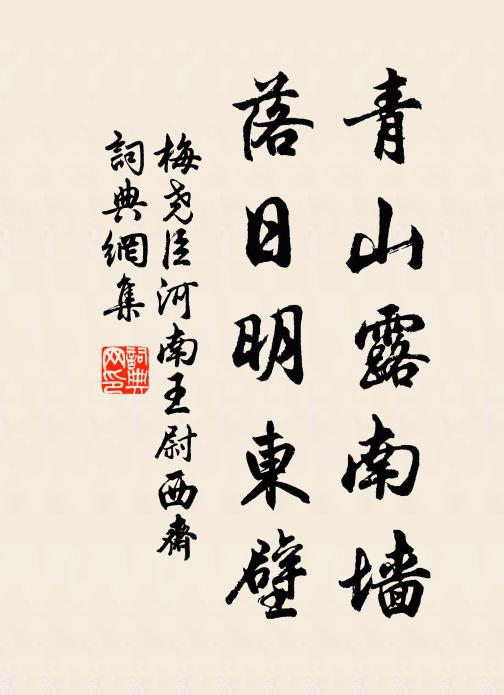 青山露南墻
落日明東壁
梅堯臣河南王尉西齋
詞典網集
詞典
网印